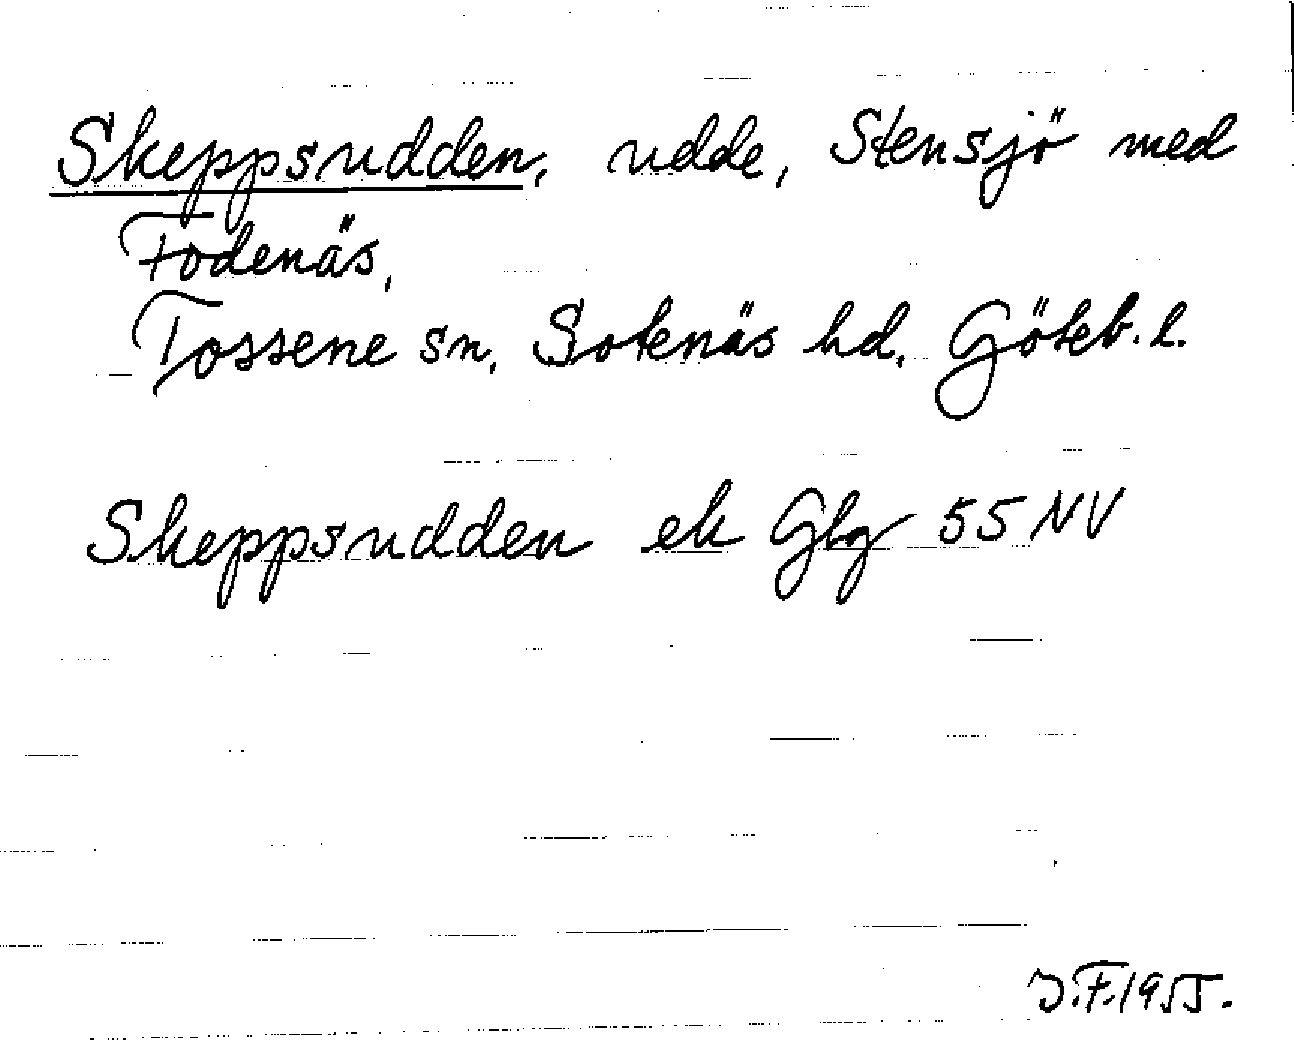 Skeppsudden, udde, Stensjö med
Fodenäs,
Tossene sn, Sotenäs hd. Göteb. l.
Skeppsudden ek Gbg 55 NV
J.F. 1955.